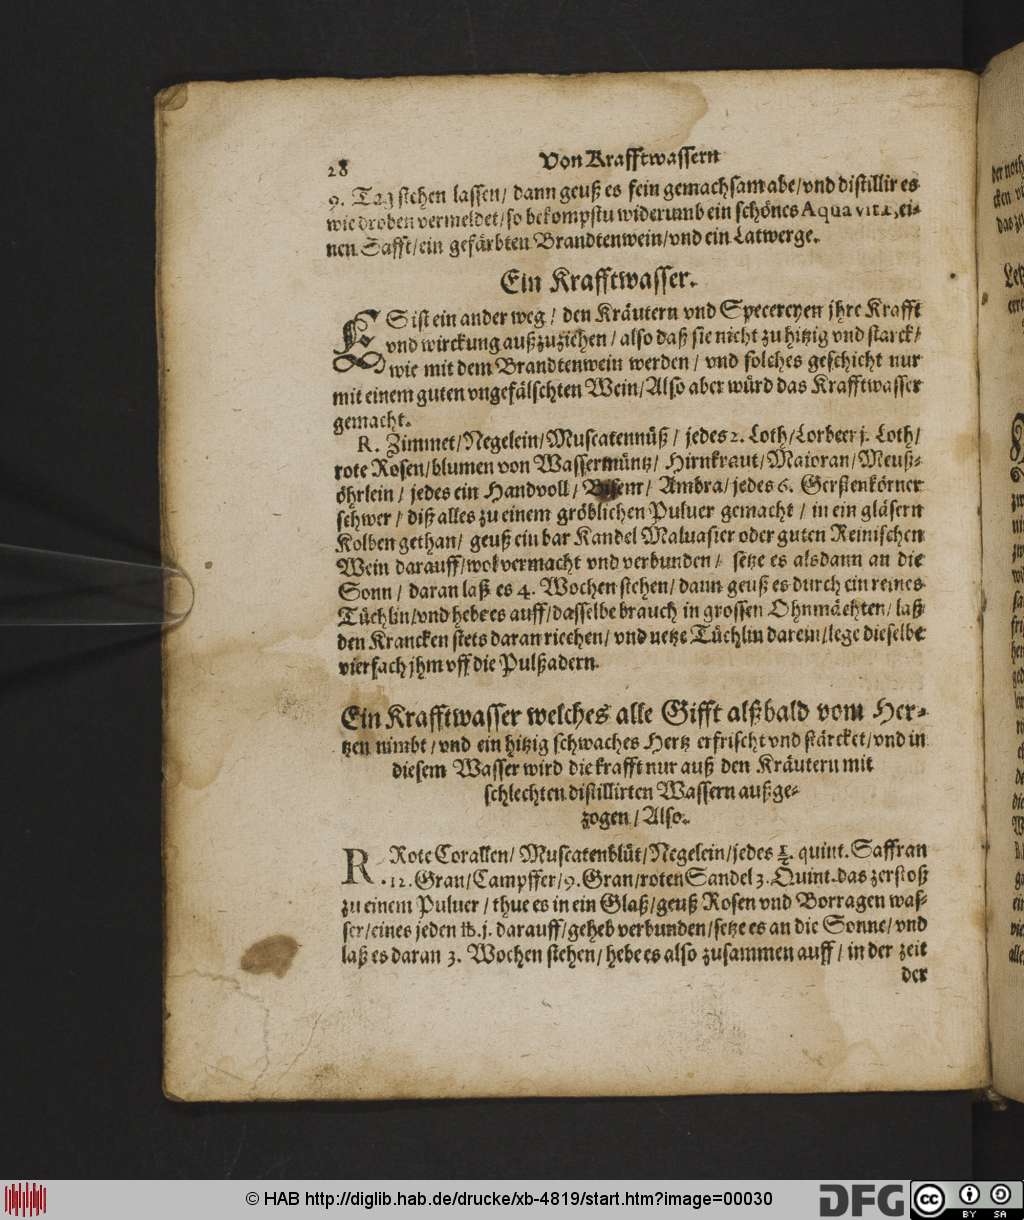 28 Von Krafftwassern
9. Tag stehen lassen/ dann geuß es fein gemachsam abe/vnd distillir es
wie droben vermeldet/so bekompstu widerumb ein schönes Aqua vitæ, ei-
nen Safft/ein gefärbten Brandtenwein/vnd ein Latwerge.
Ein Krafftwasser.
ES ist ein ander weg/ den Kräutern vnd Specereyen jhre Krafft
vnd wirckung außzuziehen/ also daß sie nicht zu hitzig vnd starck/
wie mit dem Brandtenwein werden/ vnd solches geschicht nur
mit einem guten vngefälschten Wein/Also aber würd das Krafftwasser
gemacht.
R. Zimmet/Negelein/Muscatennüß/ jedes 2. Loth/Lorbeer j. Loth/
rote Rosen/blumen von Wassermüntz/ Hirnkraut/Maioran/Meuß-
öhrlein/ jedes ein Handvoll/ Bisem/ Ambra/jedes 6. Gerstenkörner
schwer/ diß alles zu einem gröblichen Puluer gemacht/ in ein gläsern
Kolben gethan/ geuß ein bar Kandel Maluasier oder guten Reinischen
Wein darauff/wol vermacht vnd verbunden/ setze es alsdann an die
Sonn/ daran laß es 4. Wochen stehen/ dann geuß es durch ein reines
Tüchlin/vnd hebe es auff/dasselbe brauch in grossen Ohnmächten/ laß
den Krancken stets daran riechen/ vnd netze Tüchlin darein/lege dieselbe
vierfach jhm vff die Pulßadern.
Ein Krafftwasser welches alle Gifft alßbald vom Her-
tzen nimbt/vnd ein hitzig schwaches Hertz erfrischt vnd stärcket/vnd in
diesem Wasser wird die krafft nur auß den Kräutern mit
schlechten distillirten Wassern außge-
zogen/Also.
R. Rote Corallen/ Muscatenblüt/Negelein/jedes ½. quint. Saffran
12. Gran/Campffer/9. Gran/roten Sandel 3. Quint. das zerstoß
zu einem Puluer/ thue es in ein Glaß/geuß Rosen vnd Borragen was-
ser/eines jeden ℔. j. darauff/geheb verbunden/setze es an die Sonne/vnd
laß es daran 3. Wochen stehen/hebe es also zusammen auff/ in der zeit
der
© HAB http://diglib.hab.de/drucke/xb-4819/start.htm?image=00030
DFG
cc BY SA